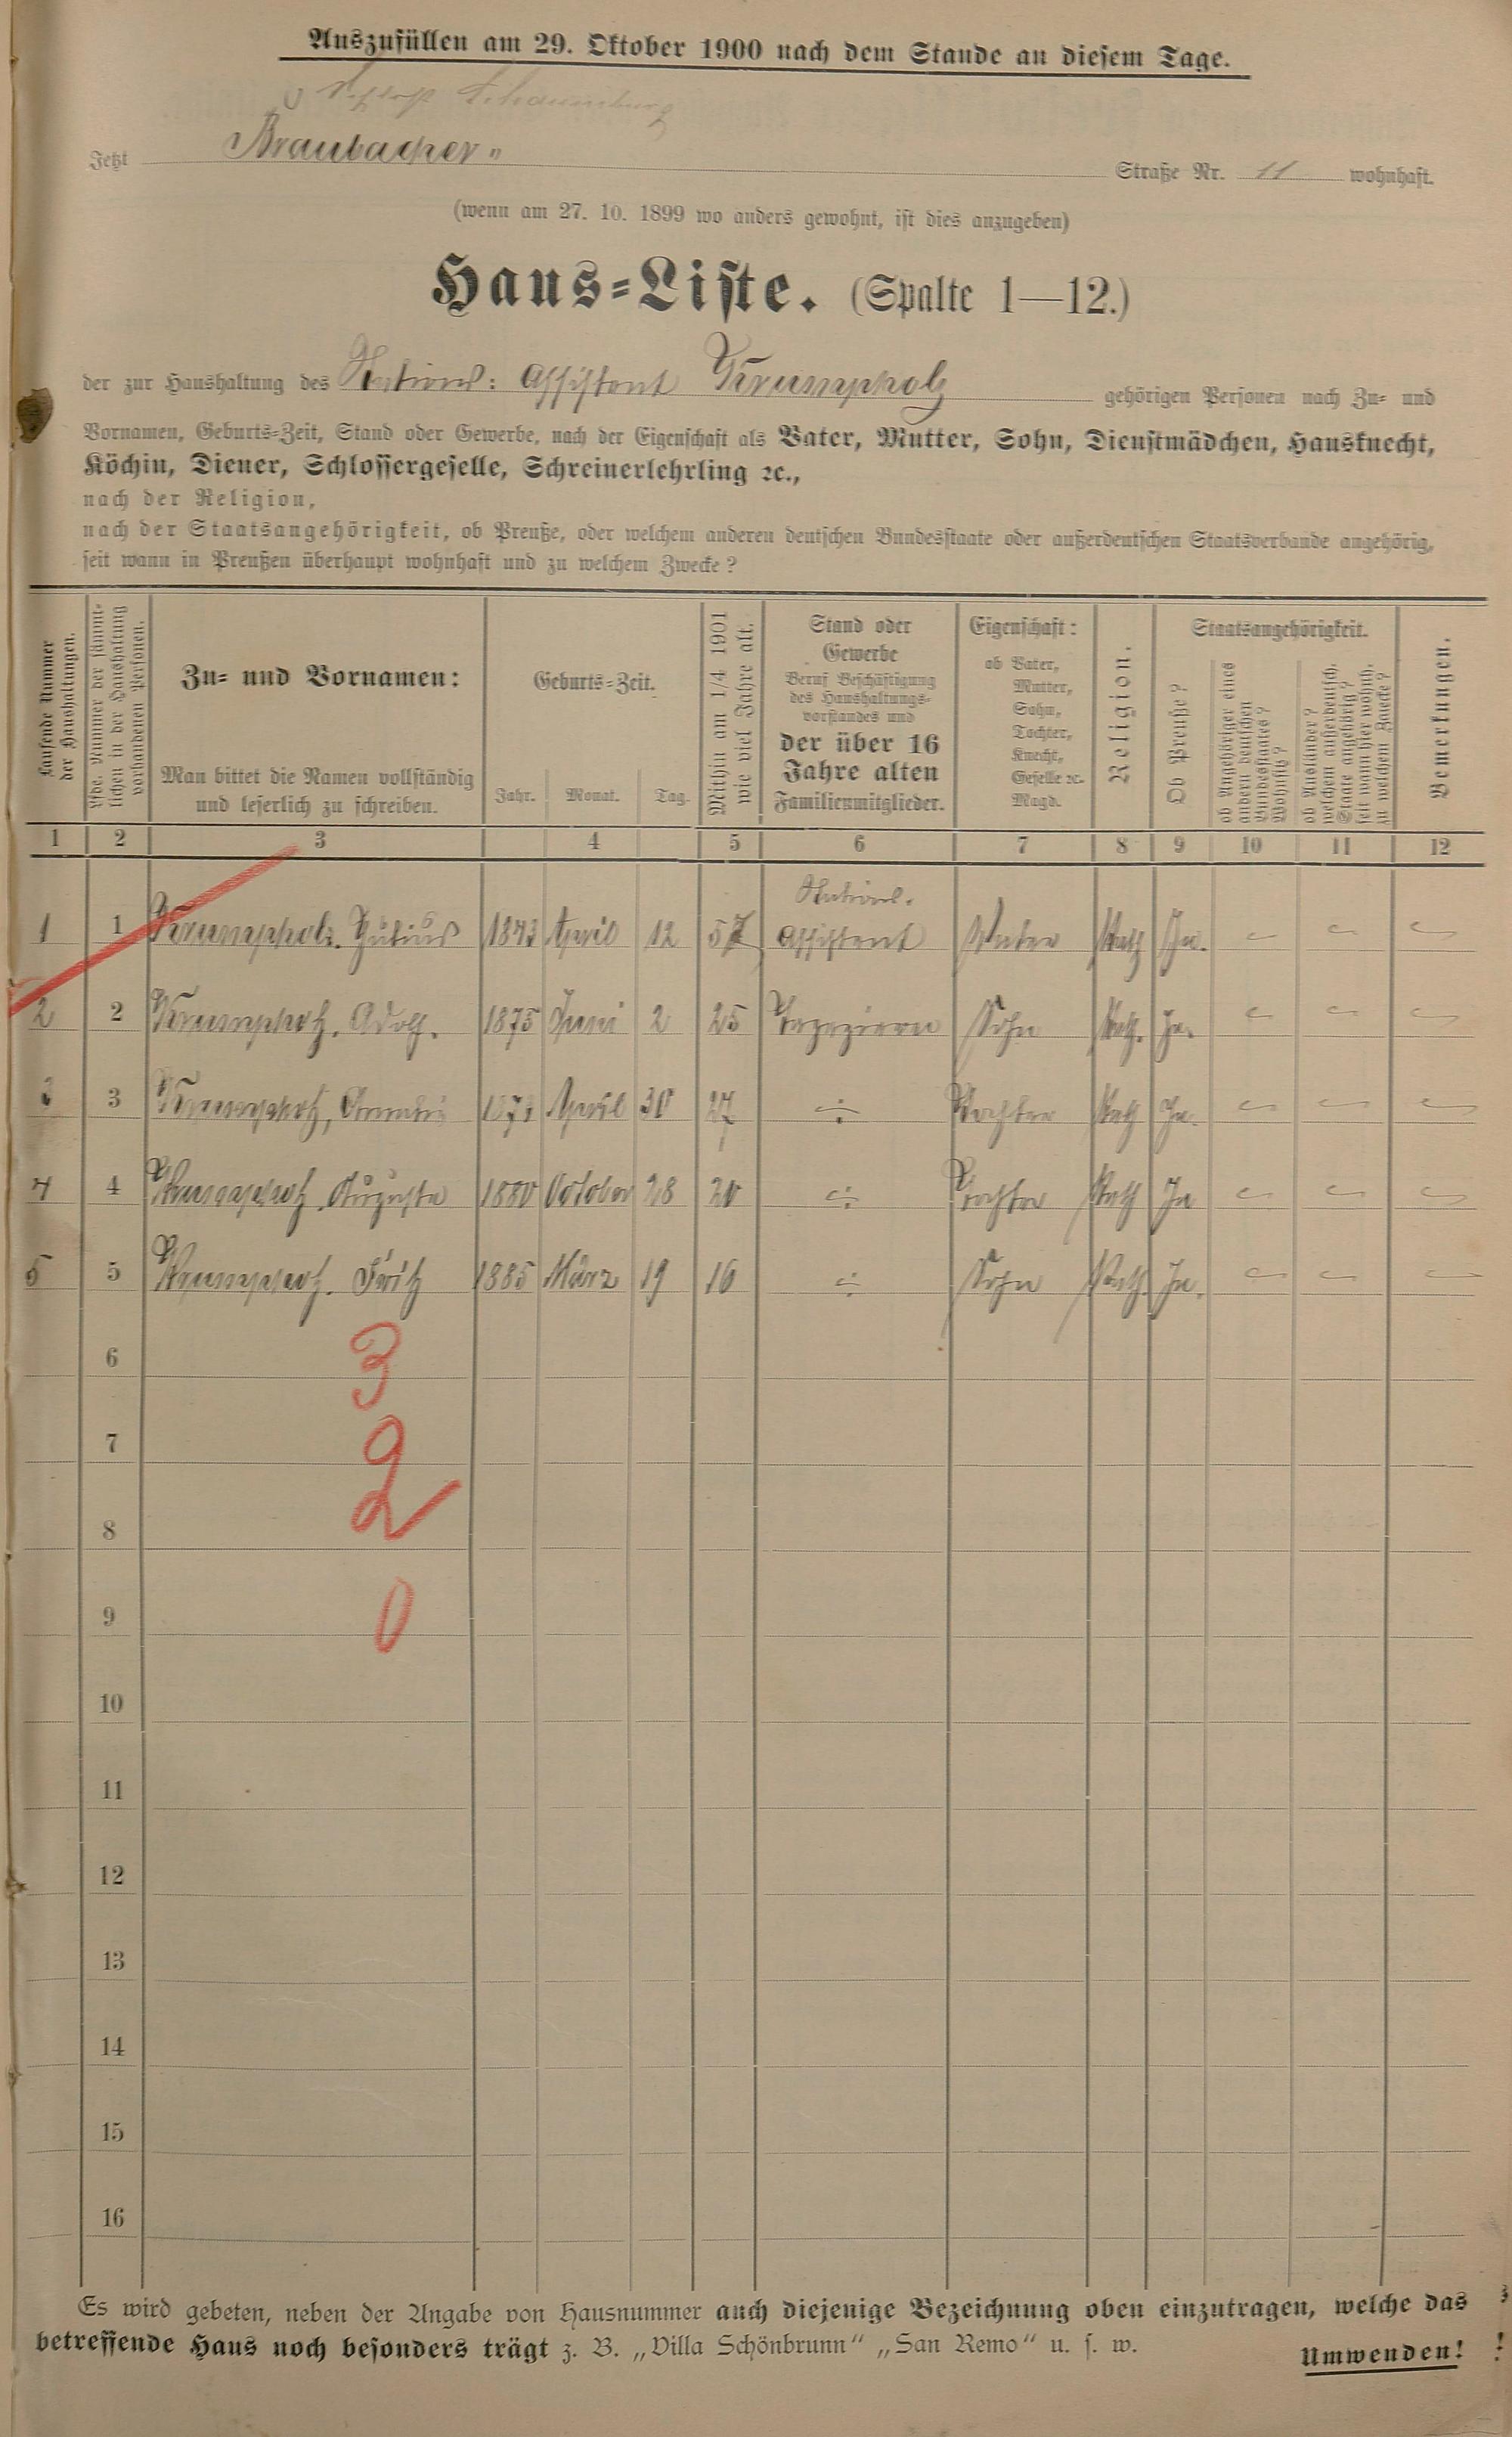 Auszufüllen am 29. Oktober 1900 nach dem Stande an diesem Tage.
Schloss Schaumburg
Jetzt Braubacher " Straße Nr. 11 wohnhaft.
(wenn am 27. 10. 1899 wo anders gewohnt, ist dies anzugeben)
Haus-Liste. (Spalte 1—12.)
der zur Haushaltung des Stations: Assistent Krumpholz gehörigen Personen nach Zu- und
Vornamen, Geburts-Zeit, Stand oder Gewerbe, nach der Eigenschaft als Vater, Mutter, Sohn, Dienstmädchen, Hausknecht,
Köchin, Diener, Schlossergeselle, Schreinerlehrling ꝛc.,
nach der Religion,
nach der Staatsangehörigkeit, ob Preuße, oder welchem anderen deutschen Bundesstaate oder außerdeutschen Staatsverbande angehörig,
seit wann in Preußen überhaupt wohnhaft und zu welchem Zwecke?
Laufende Nummer
der Haushaltungen.
Lfde. Nummer der sämmt-
lichen in der Haushaltung
vorhandenen Personen.
Zu- und Vornamen:
Man bittet die Namen vollständig
und leserlich zu schreiben.
Geburts-Zeit.
Jahr. Monat. Tag.
Mithin am 1/4 1901
wie viel Jahre alt.
Stand oder
Gewerbe
Beruf Beschäftigung
des Haushaltungs-
vorstandes und
der über 16
Jahre alten
Familienmitglieder.
Eigenschaft:
ob Vater,
Mutter,
Sohn,
Tochter,
Knecht,
Geselle ꝛc.
Magd.
Religion.
Staatsangehörigkeit.
Ob Preuße?
ob Angehöriger eines
andern deutschen
Bundesstaates?
Wohnsitz?
ob Ausländer?
welchem außerdeutsch.
Staate angehörig?
seit wann hier wohnh.
zu welchem Zwecke?
Bemerkungen.
1 2 3 4 5 6 7 8 9 10 11 12
1 1 Krumpholz. Julius 1843 April 12 57 Stations. Assistent Vater Kath Ja. — — —
2 2 Krumpholz. Adolf. 1875 Juni 2 25 Tapezierer Sohn Kath. Ja. — — —
3 3 Krumpholz, April 30 27 ÷ Tochter Kath Ja. — — —
4 4 Krumpholz Augusta 1880 October 28 20 ÷ Tochter Kath Ja — — —
5 5 Krumpholz. Fritz 1885 März 19 16 ÷ Sohn Kath. Ja. — — —
6 3
7 2
8
9 0
10
11
12
13
14
15
16
Es wird gebeten, neben der Angabe von Hausnummer auch diejenige Bezeichnung oben einzutragen, welche das
betreffende Haus noch besonders trägt z. B. „Villa Schönbrunn“ „San Remo“ u. s. w.
Umwenden!